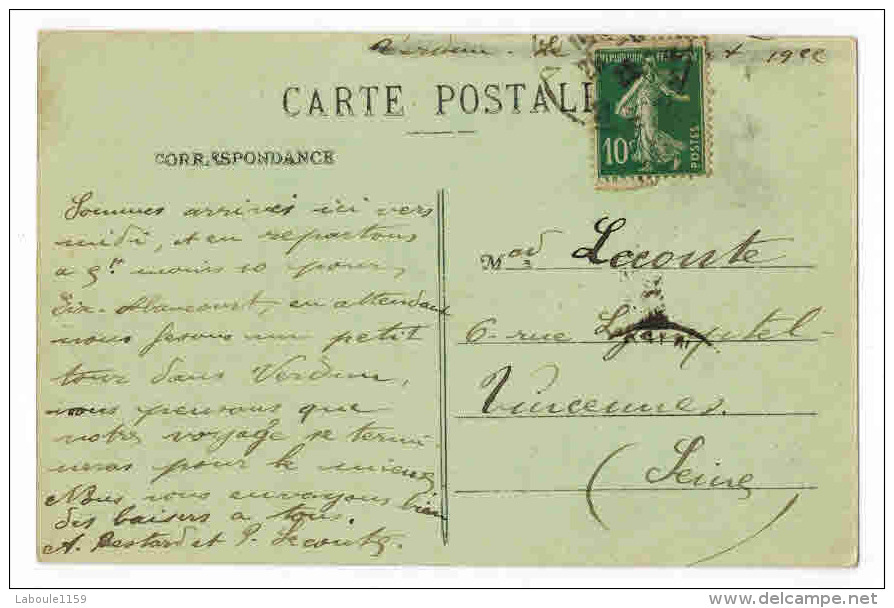 Verdun. le 1922
CARTE POSTALE
10c
POSTES
CORRESPONDANCE
Sommes arrivés ici vers
midi, et en repartons
a 5h moins 10 pour,
Dix-Abancourt, en attendant
nous fesons un petit
tour dans Verdun,
nous pensons que
notre voyage se termi-
neras pour le mieux
Nous vous envoyons bien
des baisers a tous.
A. Bestard et P. Leconte.
Mad Leconte
6. rue
Vincennes.
(Seine)
Laboule1159
www.delcampe.net